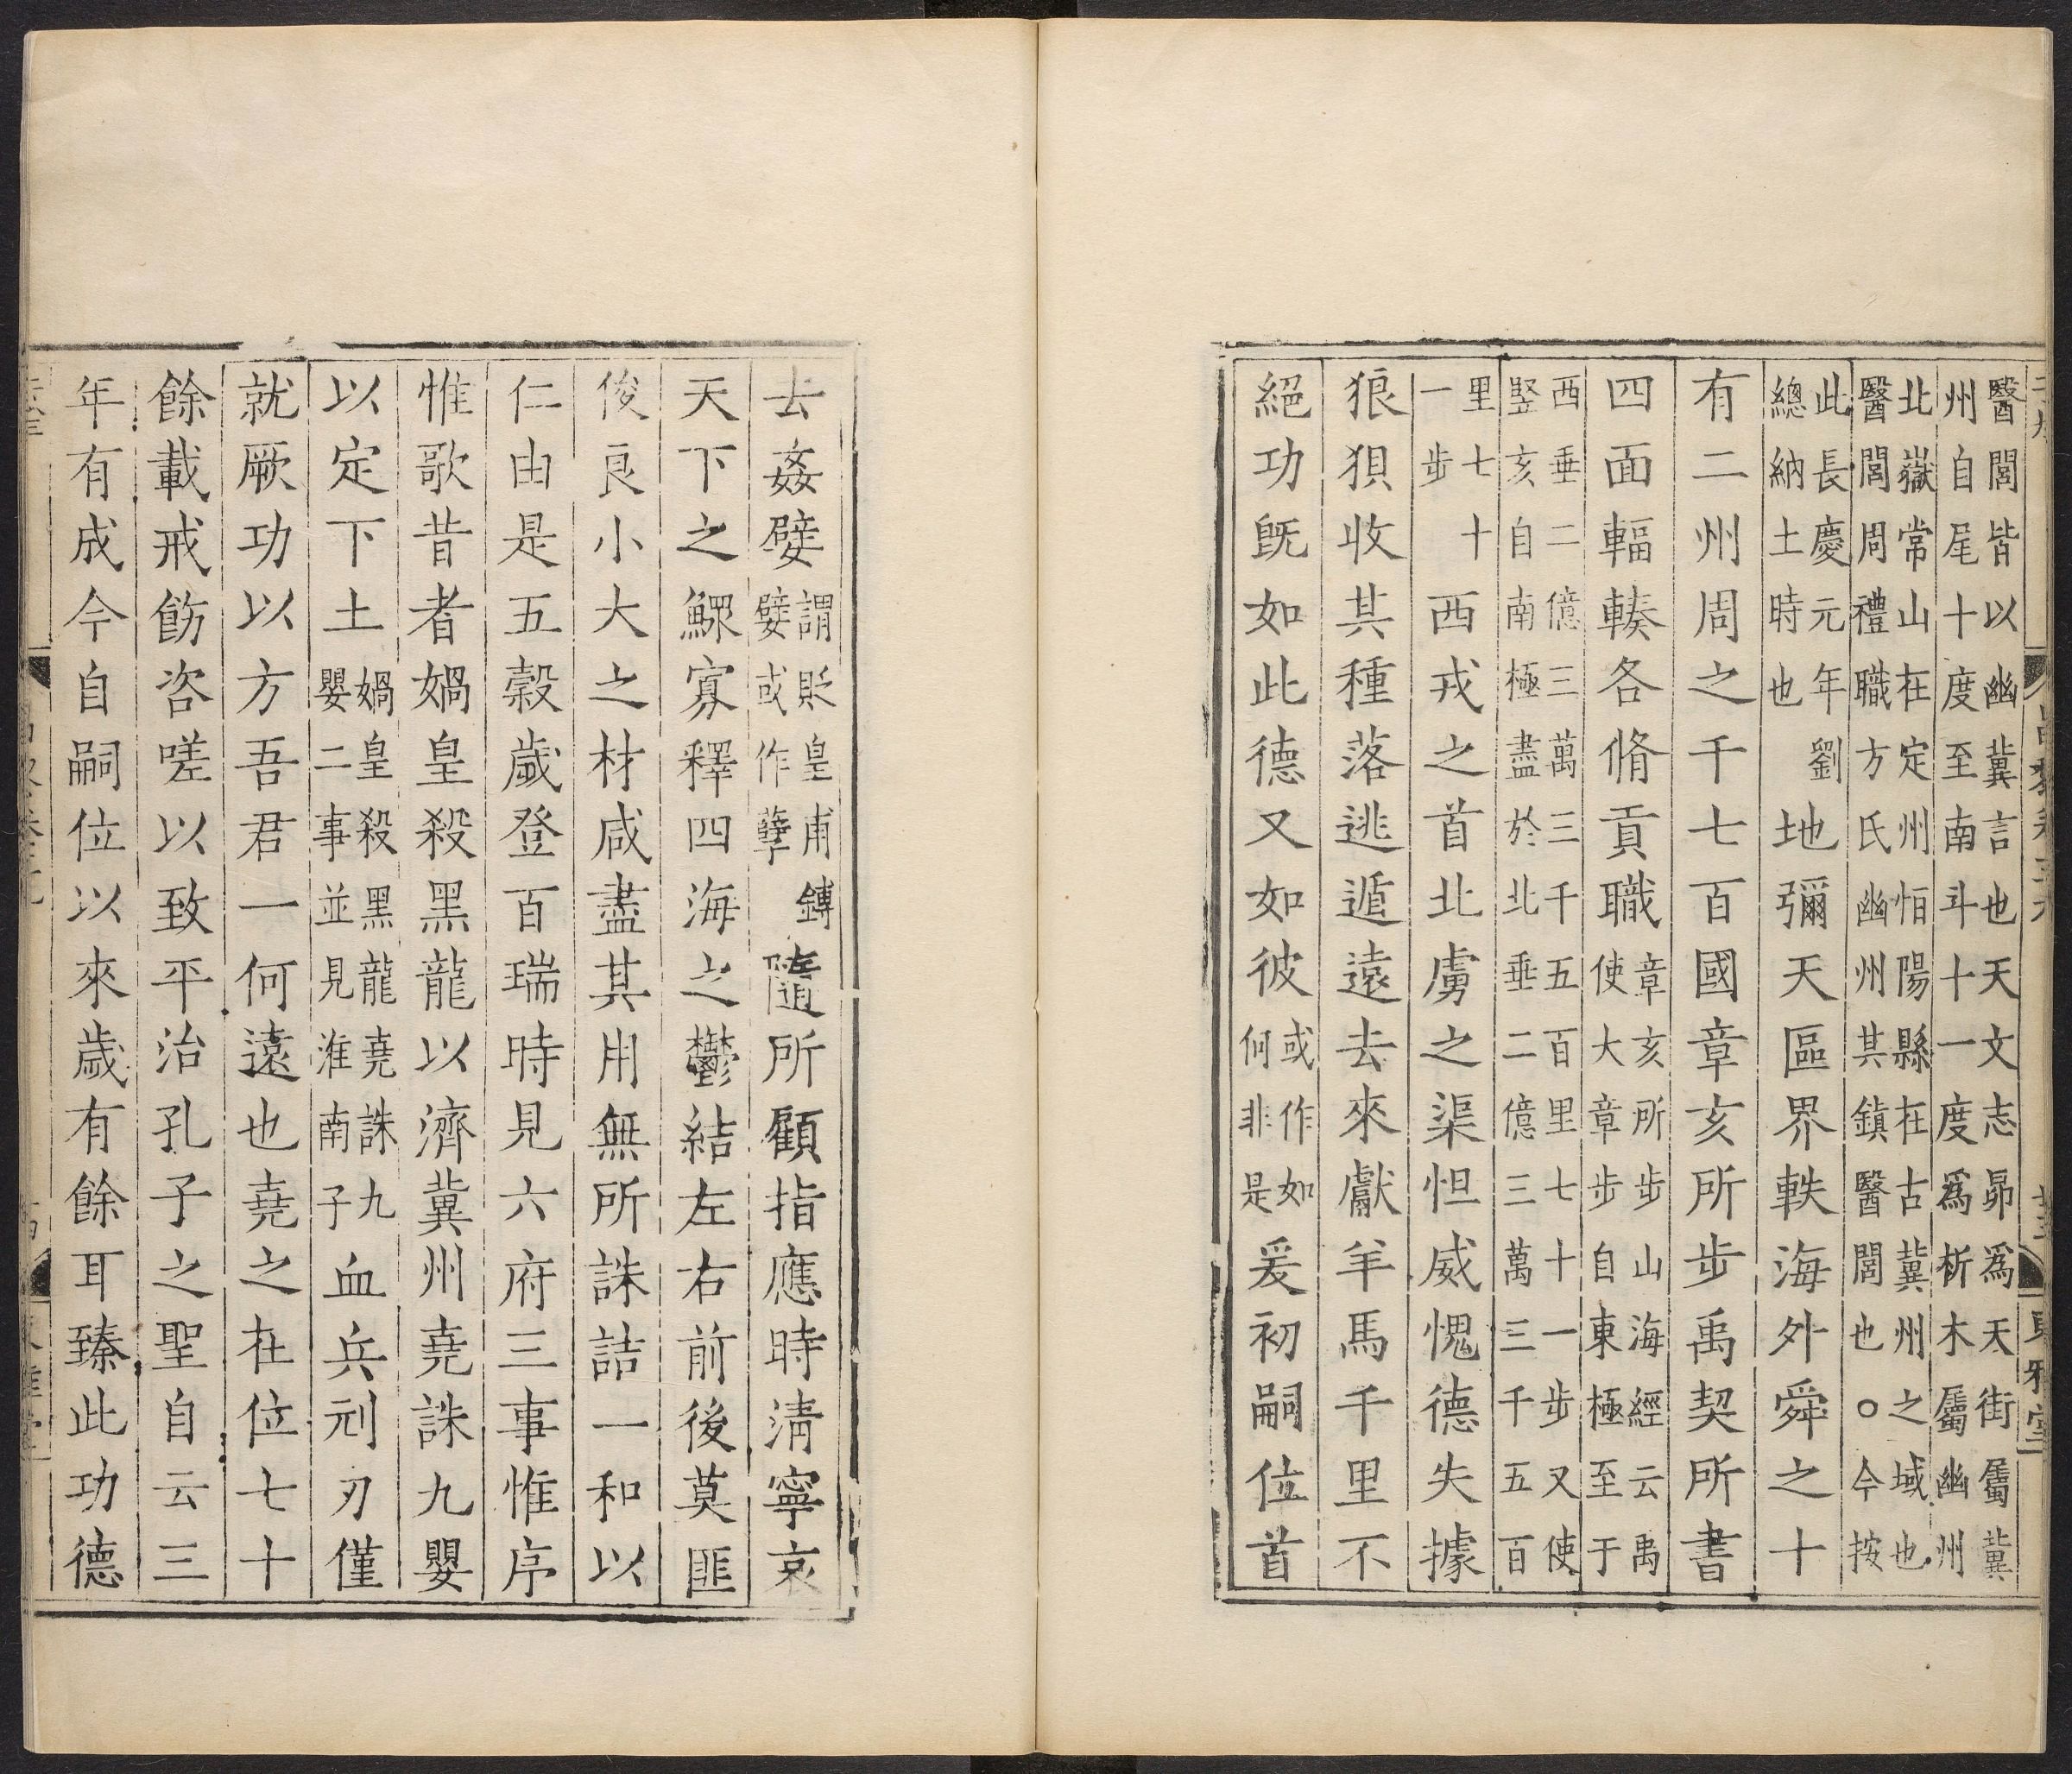 醫閭皆以幽冀言也天文志昴爲天街屬冀
州自尾十度至南斗十一度爲析木屬幽州
北嶽常山在定州恒陽縣在古冀州之域也
醫閭周禮職方氏幽州其鎮醫閭也○今按
此長慶元年劉總納土時也地彌天區界軼海外舜之十
有二州周之千七百國章亥所步禹契所書
四面輻輳各脩貢職章亥所步山海經云禹使大章步自東極至于
西垂二億三萬三千五百里七十一步又使
竪亥自南極盡於北垂二億三萬三千五百
里七十一步西戎之首北虜之渠怛威愧德失據
狼狽收其種落逃遁遠去來獻羊馬千里不
絕功旣如此德又如彼或作如何非是爰初嗣位首
去姦嬖謂貶皇甫鏄嬖或作孽隨所顧指應時淸寧哀
天下之鰥寡釋四海之鬱結左右前後莫匪
俊良小大之材咸盡其用無所誅詰一和以
仁由是五穀歲登百瑞時見六府三事惟序
惟歌昔者媧皇殺黑龍以濟冀州堯誅九嬰
以定下土媧皇殺黑龍堯誅九嬰二事並見淮南子血兵刓刃僅
就厥功以方吾君一何遠也堯之在位七十
餘載戒飭咨嗟以致平治孔子之聖自云三
年有成今自嗣位以來歲有餘耳臻此功德